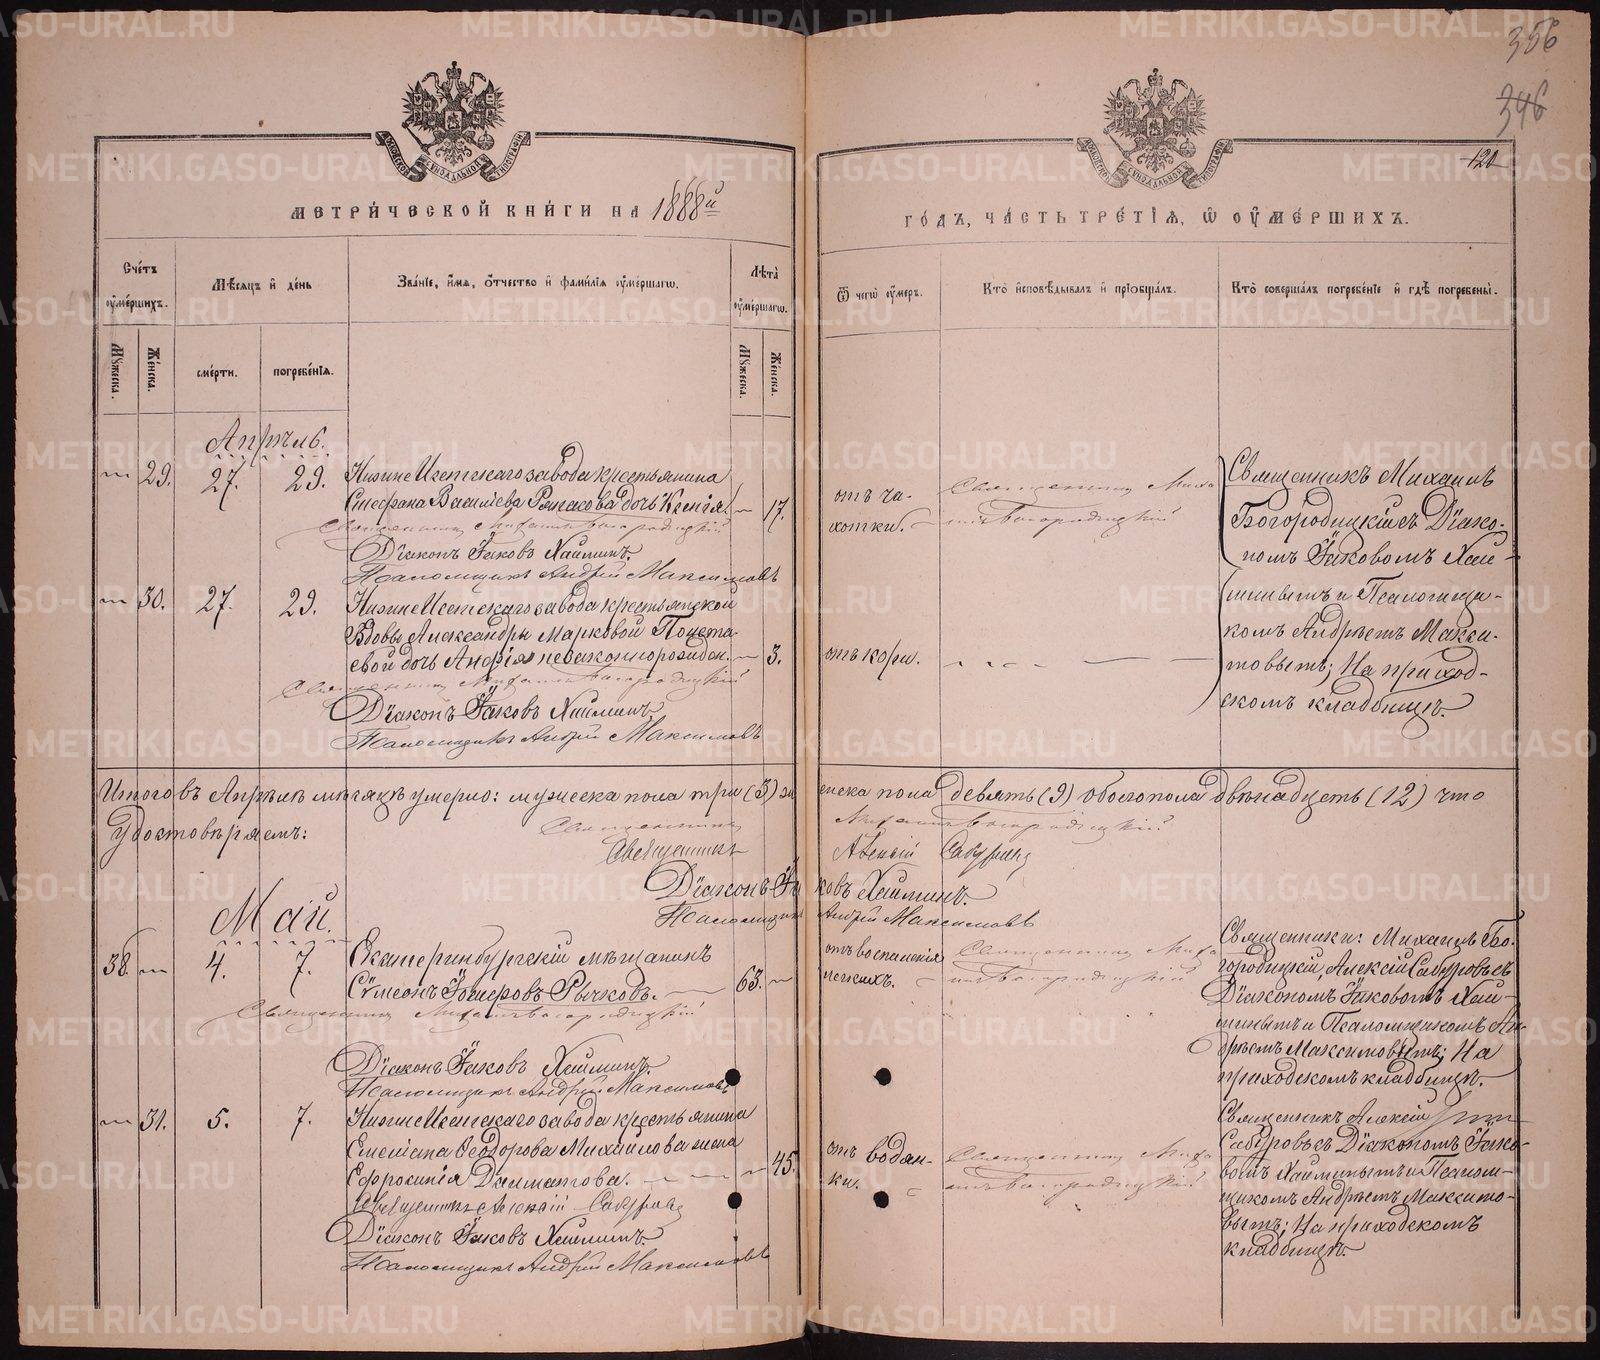 356
346
120
МЕТРИ́ЧЕСКОЙ КНИ́ГИ НА 1888й
ГО́ДЪ, ЧА́СТЬ ТРЕ́ТІѦ, Ѽ ОУ҆МЕ́РШИХЪ.
Сче́тъ оу҆ме́ршихъ.
Мѣ́сѧцъ и҆ де́нь
Зва́нїе, и҆́мѧ, ѻ҆́тчество и҆ фами́лїѧ оу҆ме́ршагѡ.
Лѣ́та оу҆ме́ршагѡ.
Ѿ чегѡ̀ оу҆́меръ.
Кто̀ и҆сповѣ́дывалъ и҆ прїѡбща́лъ.
Кто̀ соверша́лъ погребе́нїе и҆ гдѣ̀ погребены̀.
Мꙋ́жеска.
Же́нска.
сме́рти.
погребе́нїѧ.
Мꙋ́жеска.
Же́нска.
Апрѣль.
29. 27. 29. Нижне Исетскаго завода крестьянина
Стефана Василіева дочь Ксенія. 17.
Священникъ Михаилъ Богородицкій
Діаконъ Іаковъ Хайминъ.
Псаломщикъ Андрій Максимовъ
отъ ча-
хотки.
Священникъ Миха
илъ Богородицкій
Священникъ Михаилъ
Богородицкій съ Діако-
номъ Іаковомъ Хай-
минымъ и Псаломщи-
комъ Андреемъ Макси-
мовымъ; На приход-
скомъ кладбищѣ.
30. 27. 29. Нижне Исетскаго завода крестьянской
Вдовы Александры Марковой
дочь Анфія незаконнорожден. 3.
Священникъ Михаилъ Богородицкій
Діаконъ Іаковъ Хайминъ.
Псаломщикъ Андрій Максимовъ
отъ кори.
Итого въ Апрѣлѣ мѣсяцѣ умерло: мужеска пола три (3) женска пола девять (9) обоего пола двѣнадцать (12) что
удостовѣряемъ:
Священникъ Михаилъ Богородицкій
Священникъ Алексій Сабуровъ
Діаконъ Іаковъ Хайминъ.
Псаломщикъ Андрій Максимовъ
Май.
38. 4. 7. Екатеринбургскій мѣщанинъ
Сѵмеонъ Рычковъ. 63.
Священникъ Михаилъ Богородицкій
Діаконъ Іаковъ Хайминъ.
Псаломщикъ Андрій Максимовъ
отъ воспаленія
легкихъ.
Священникъ Миха
илъ Богородицкій
Священники: Михаилъ Бо-
городицкій, Алексій Сабуровъ съ
Діакономъ Іаковомъ Хай-
минымъ и Псаломщикомъ Ан-
дреемъ Максимовымъ; На
приходскомъ кладбищѣ.
31. 5. 7. Нижне Исетскаго завода крестьянина
Емеліана Ѳеодорова Михайлова жена
Ефросинія Далматова. 45.
Священникъ Алексій Сабуровъ
Діаконъ Іаковъ Хайминъ.
Псаломщикъ Андрій Максимовъ
отъ водян-
ки.
Священникъ Миха
илъ Богородицкій
Священникъ Алексій
Сабуровъ съ Діакономъ Іако-
вомъ Хайминымъ и Псалом-
щикомъ Андреемъ Максимо-
вымъ; На приходскомъ
кладбищѣ.
METRIKI.GASO-URAL.RU